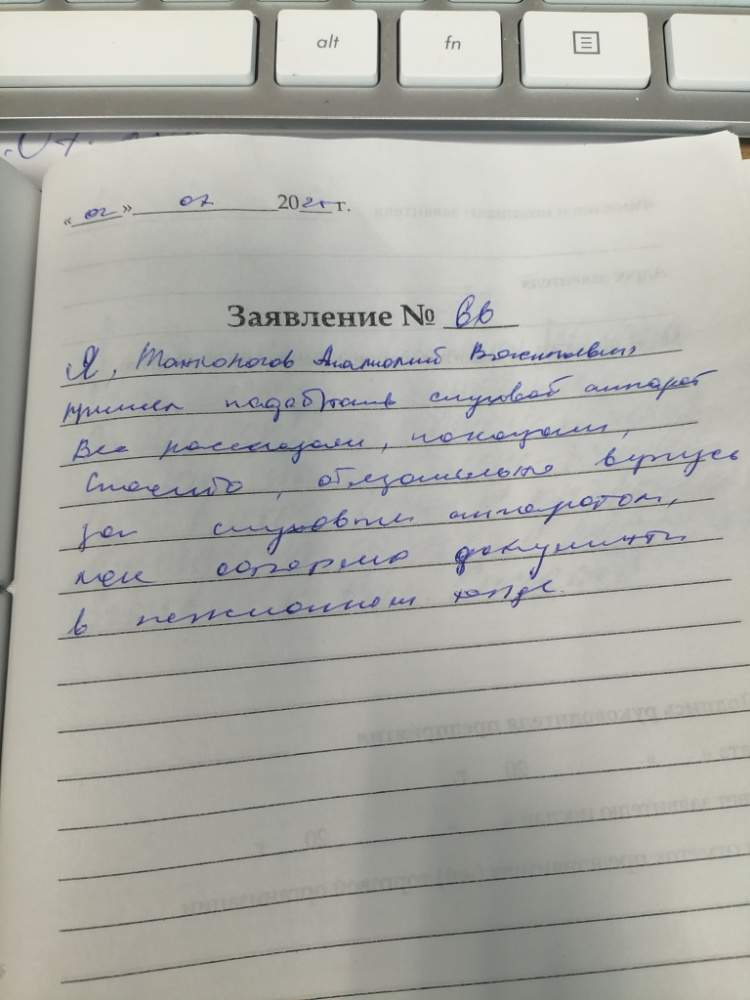 alt fn
«02» 07 2025 г.
Заявление № 66
Я, Анатолий Васильевич
пришел подобрать слуховой аппарат
Все рассказали, показали,
Спасибо, обязательно вернусь
за слуховым аппаратом,
как оформлю документы
в пенсионном фонде.